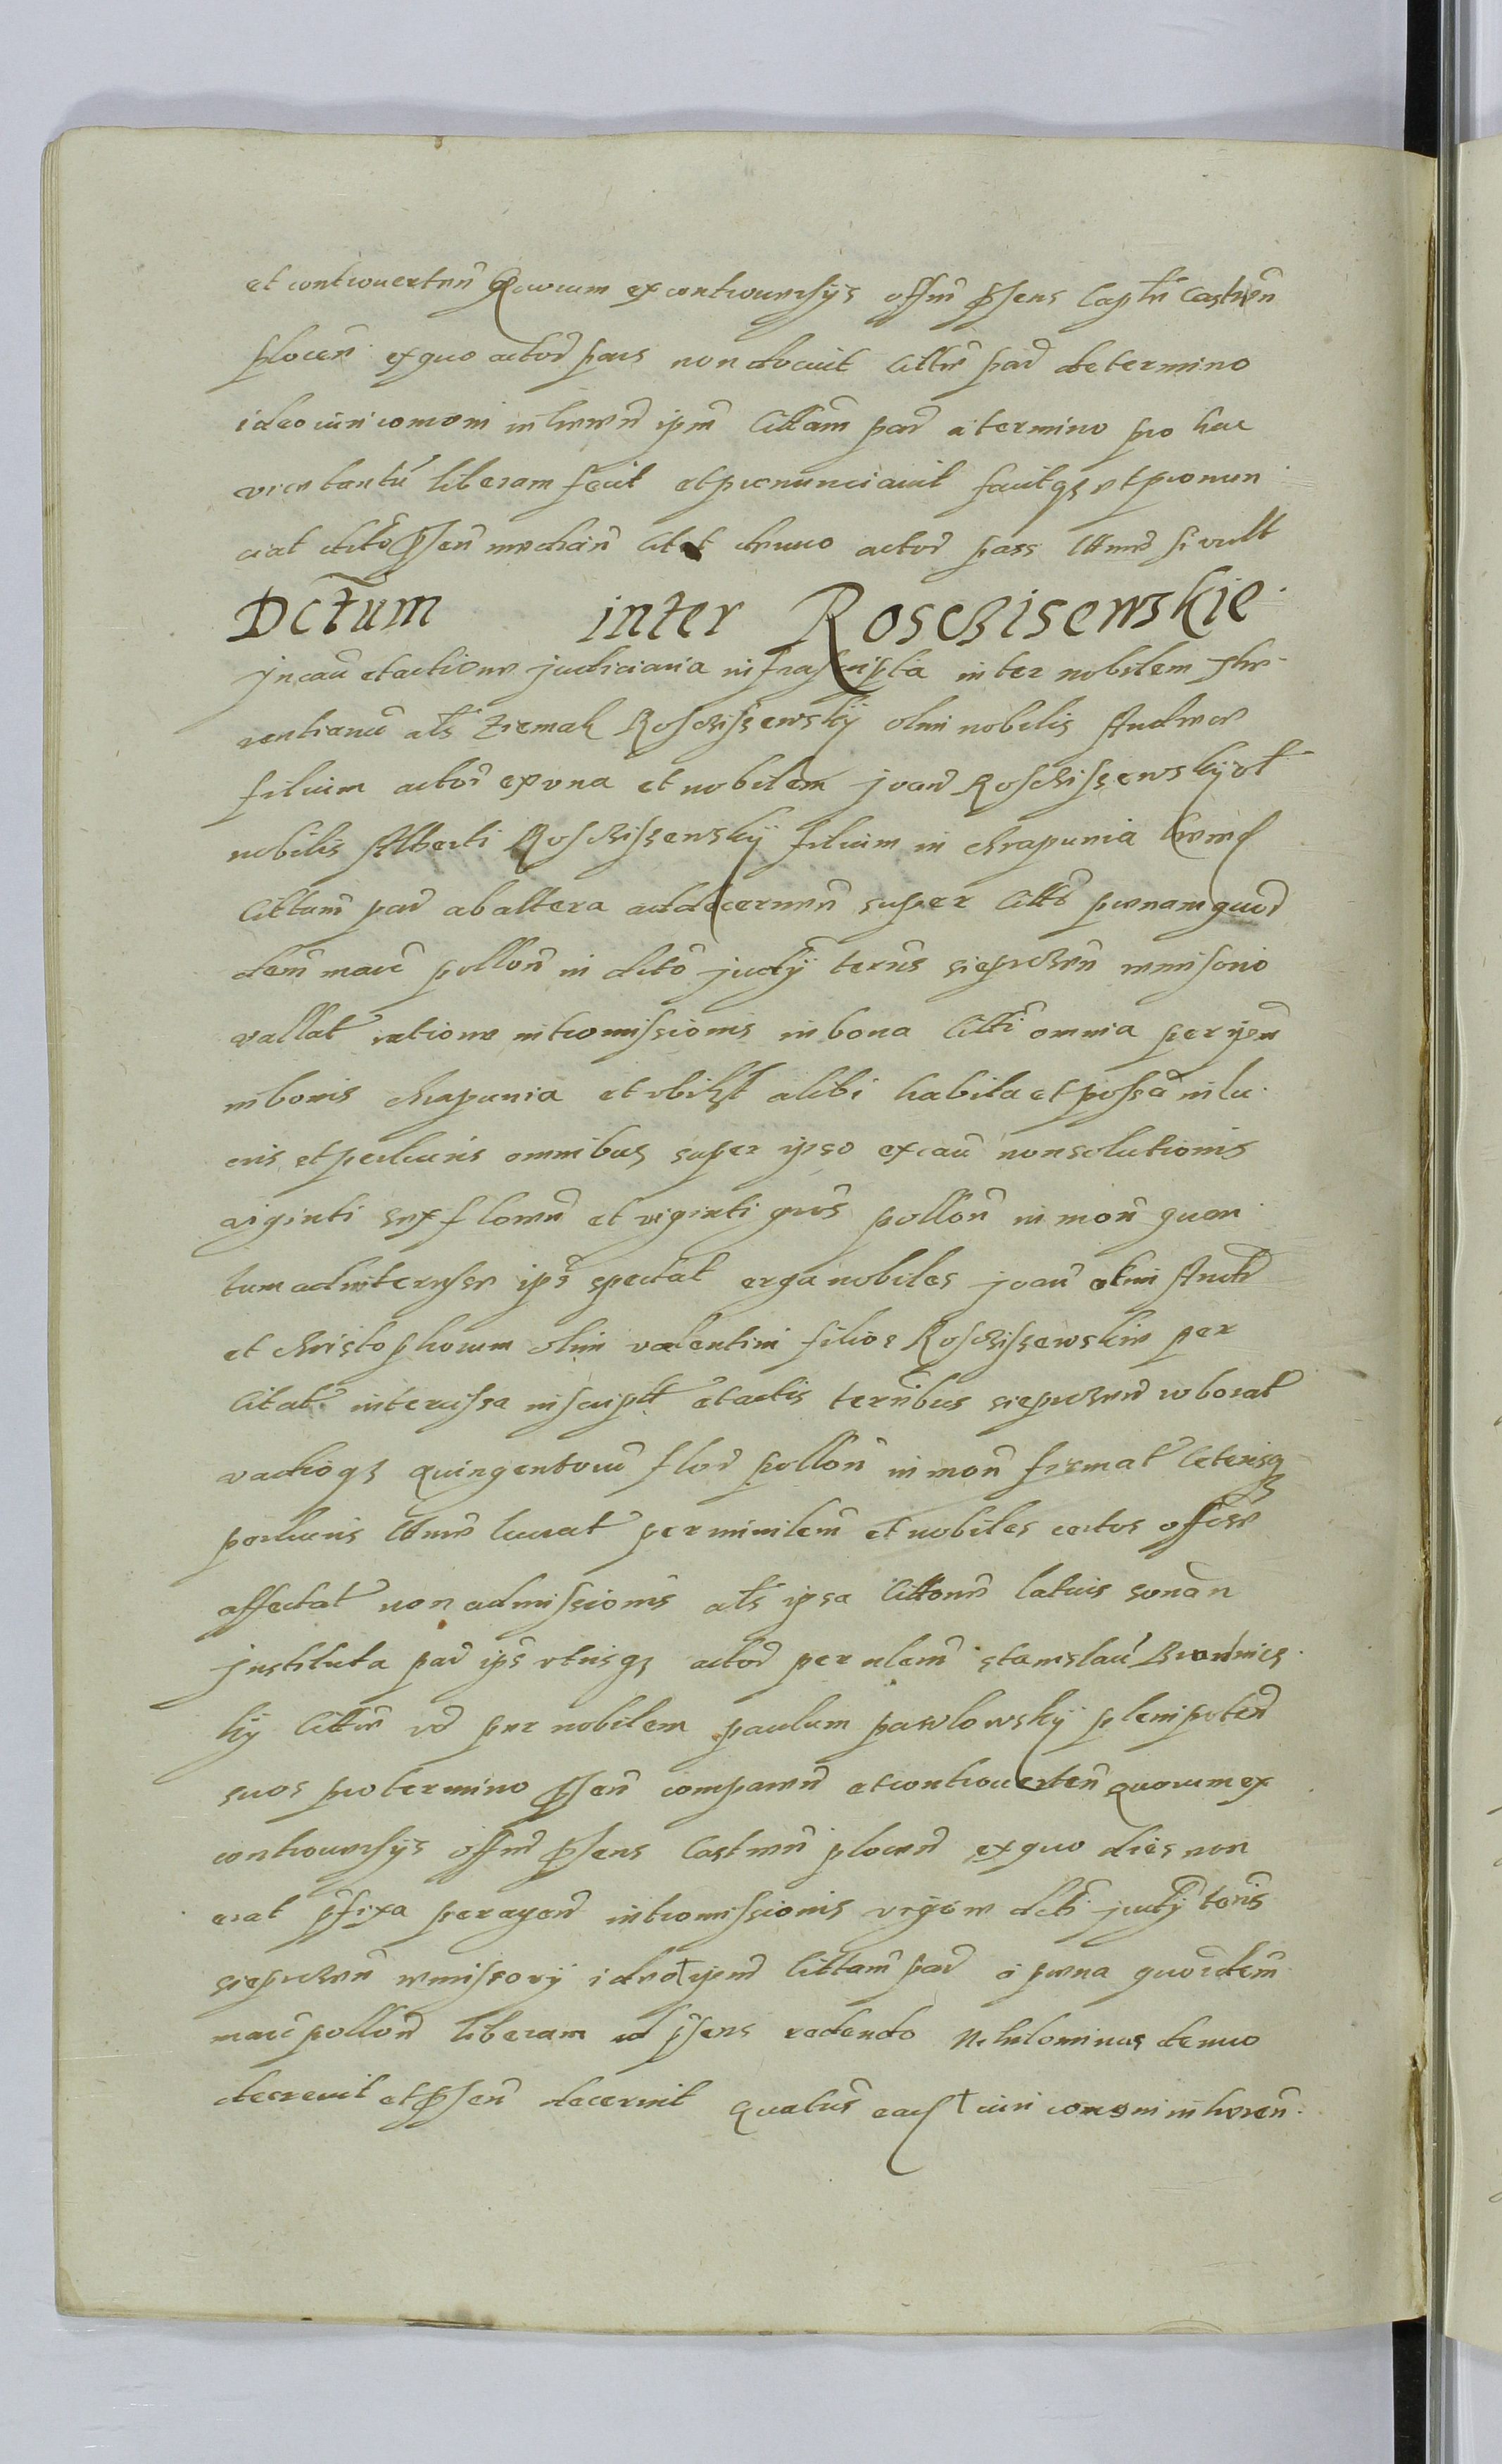 et controverten Quorum ex controuersijs offm pnsens Captn Castren
plocen ex quo actor pars non docuit Citte par de termino
ideo iuri comoni inheren ipm Cittam par a termino pro hac
vice tantu liberam fecit et pronunciauit facitqz et pronun
ciat decto pnsen median Citet denuo actor pars Ittm si vult
Dctum inter Roscziszewskie
In cau et actione judiciaria infrascripta inter nobilem Flo
rentianu als Ziemak Rosciszewskij olim nobilis Andreæ
filium actor ex vna et nobilem joan Rosciszewskij ol
nobilis Alberti Rosciszewskij filium in Chrapunia
Cittam par ab altera ad decernen super Citto pœnam quor
dem marc pollon in dcto judij terris sieprczen remissorio
vallat ratione intromissionis in bona Citti omnia per ipm
in bonis Chrapunia et vbilzt alibi habita et possa in lu
cris et perlucris omnibus super ipso ex cau non solutionis
viginti sex floren et viginti gros pollon in mon quan
tum ad interesse ips spectat erga nobiles joan olim Andr
et Christophorum olim valentini filios Rosciszewskie per
Citat intercissa inscript et actis terribus sieprczen roborat
vadioqz quingentoru flor pollon in mon firmat Ceterisqz
perlucris Ittm lucrat per minlem et nobiles certos offise
affectat non admissionis als ipsa Cittone latius sonan
Instituta par ips vtrisqz actor per nlem stanislau Brudnics
kij Citte vo per nobilem paulum pawlowskij plenipoten
suos pro termino pnsen comparen et controuerten quorum ex
controuersijs offm pnsens Castren plocen ex quo dies non
erat pfixa peragen intromissionis vigore dcti judij terris
sieprczen remissorij ideo ipm Cittam par a pœna quordem
marc pollon liberam ad pnsens reddendo Nihilominus denuo
decreuit et pnsen decernit Quatus iuri comoni inheren